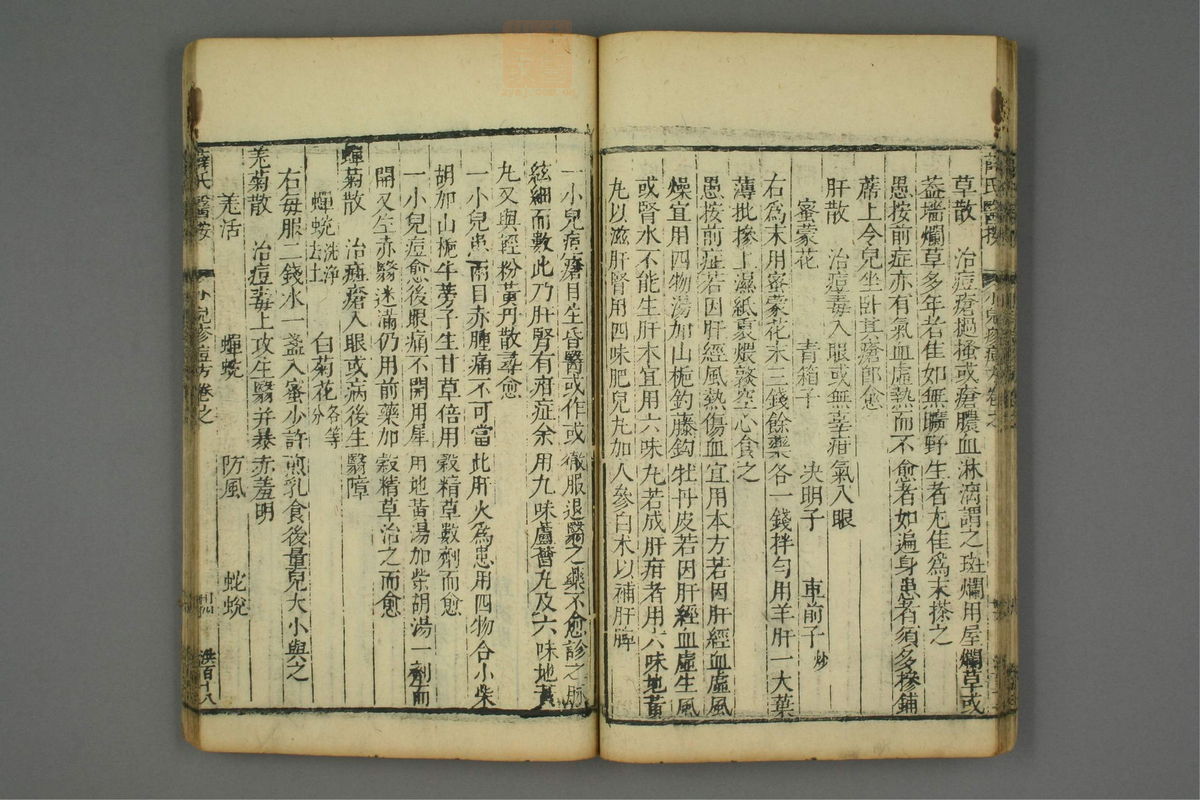 草散　治痘瘡搔或瘡膿血淋漓謂之斑爛用屋爛草或
葢墻爛草多年者佳如無曠野生者尤佳爲末搽之
愚按前症亦有氣血虛熱而不愈者如遍身患者須多摻鋪
蓆上令兒坐卧其瘡卽愈
肝散　治痘毒入眼或無辜疳氣入眼
蜜蒙花　青箱子　决明子　車前子炒
右爲末用蜜蒙花末三錢餘藥各一錢拌勻用羊肝一大葉
薄批摻上濕紙裹煨熟空心食之
愚按前症若因肝經風熱傷血宜用本方若因肝經血虛風
燥宜用四物湯加山梔釣藤鈎牡丹皮若因肝經血虛生風
或腎水不能生肝木宜用六味丸若成肝疳者用六味地黃
丸以滋肝腎用四味肥兒丸加人參白术以補肝脾
一小兒痘瘡目生昏瞖或作或徹服退瞖之藥不愈診之脉
絃細而數此乃肝腎有疳症余用九味蘆薈丸及六味地黃
丸又與輕粉黃丹散尋愈
一小兒患兩目赤腫痛不可當此肝火爲患用四物合小柴
胡加山梔牛蒡子生甘草倍用穀精草數劑而愈
一小兒痘愈後眼痛不開用犀用地黃湯加柴胡湯一劑而
開又生赤瞖迷滿仍用前藥加穀精草治之而愈
蟬菊散　治痘瘡入眼或病後生瞖障
蟬蛻洗淨去土　白菊花各等分
右每服二錢水一盞入蜜少許煎乳食後量兒大小與之
羗菊散　治痘毒上攻生瞖并暴赤羞明
羗活　蟬蛻　防風　蛇蛻
薛氏醫按　小兒疹痘方卷之